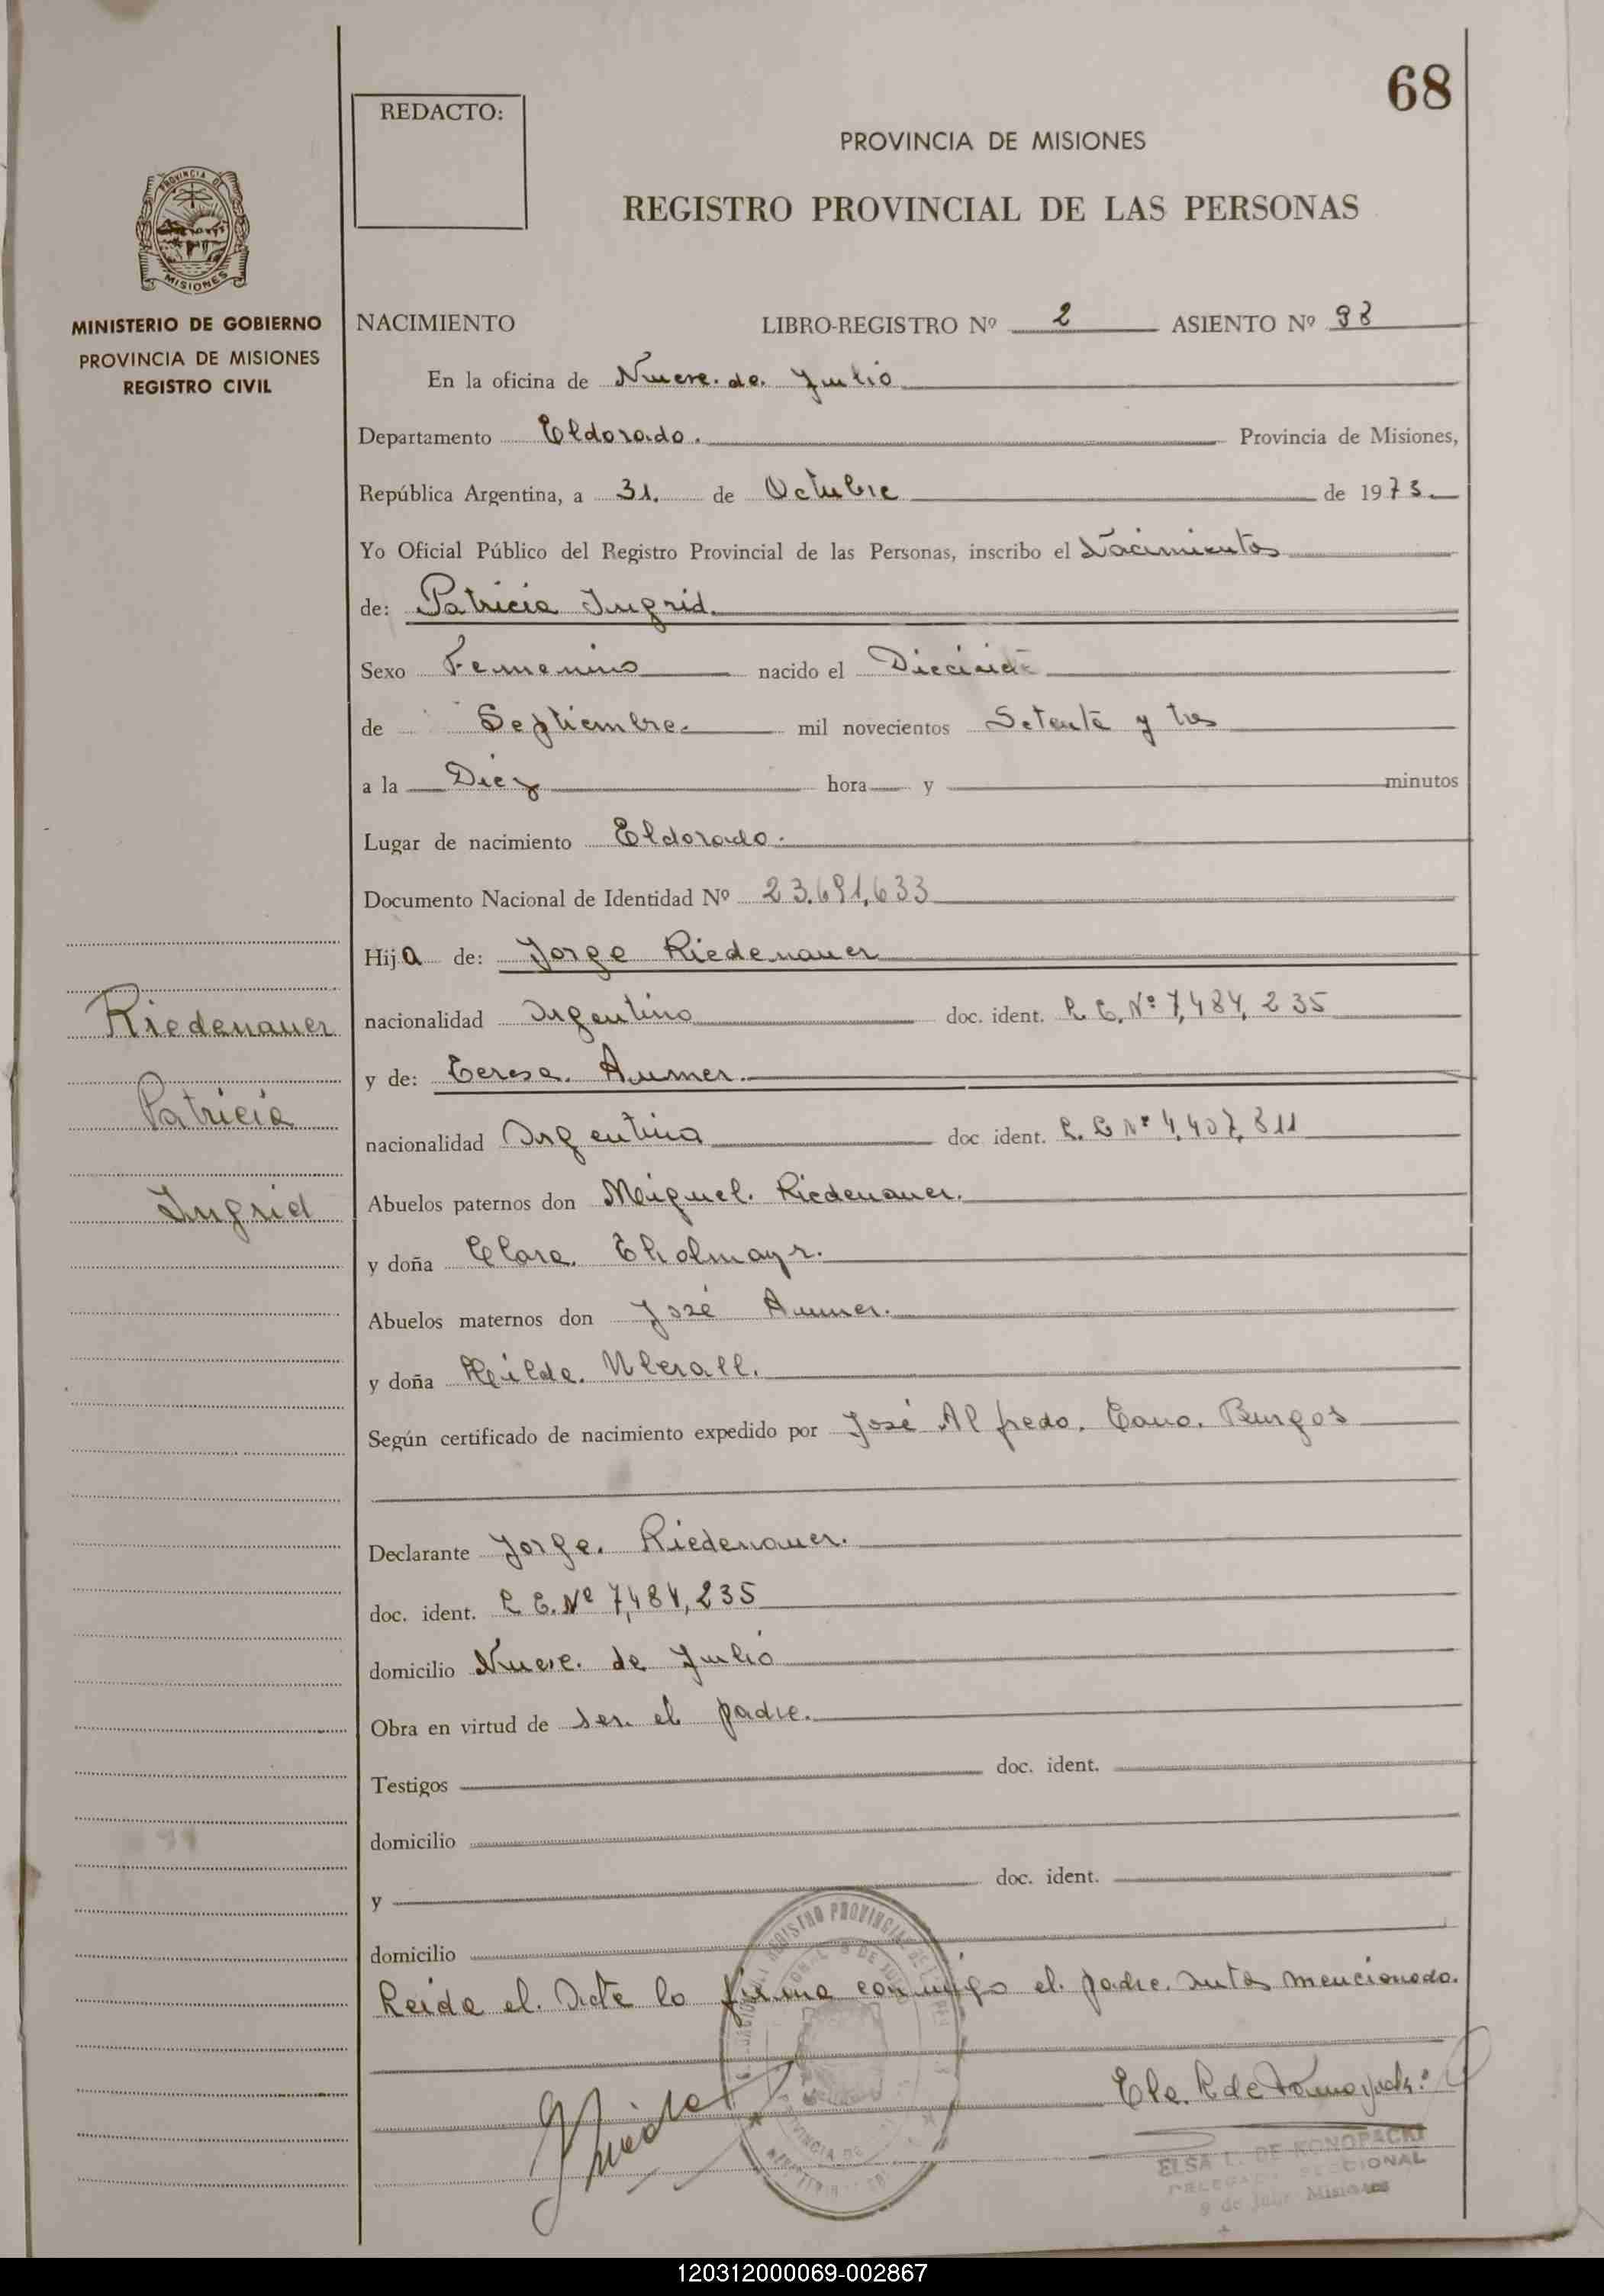 68
REDACTO:
PROVINCIA DE MISIONES
REGISTRO PROVINCIAL DE LAS PERSONAS
PROVINCIA DE
MISIONES
MINISTERIO DE GOBIERNO
PROVINCIA DE MISIONES
REGISTRO CIVIL
NACIMIENTO LIBRO-REGISTRO Nº 2 ASIENTO Nº 98
En la oficina de Nueve. de. Julio
Departamento Eldorado. Provincia de Misiones,
República Argentina, a 31. de Octubre de 1973.
Yo Oficial Público del Registro Provincial de las Personas, inscribo el Nacimientos
de: Patricia Ingrid.
Sexo Femenino nacido el
de Septiembre. mil novecientos Setenta y tres
a la Diez hora y minutos
Lugar de nacimiento Eldorado.
Documento Nacional de Identidad Nº 23.691,633
Hija de: Jorge Riedenauer
Riedenauer
nacionalidad Argentino doc. ident. L. E. Nº 7,484,235
y de: Teresa. Aumer.
Patricia
nacionalidad Argentina doc ident. L. C Nº 4,407,811
Ingrid
Abuelos paternos don Miguel. Riedenauer.
y doña Clara. Tholmayr.
Abuelos maternos don José Aumer.
y doña Hilda. Uberall.
Según certificado de nacimiento expedido por José Alfredo. Cano. Burgos
Declarante Jorge. Riedenauer.
doc. ident. L E. Nº 7,484,235
domicilio Nueve. de Julio
Obra en virtud de ser. el padre.
Testigos doc. ident.
domicilio
y doc. ident.
domicilio
Leida el. Acta lo firma conmigo el. padre. antes mencionado.
ELSA L. DE KONOPACKI
DELEGADA SECCIONAL
9 de Julio Misiones
120312000069-002867